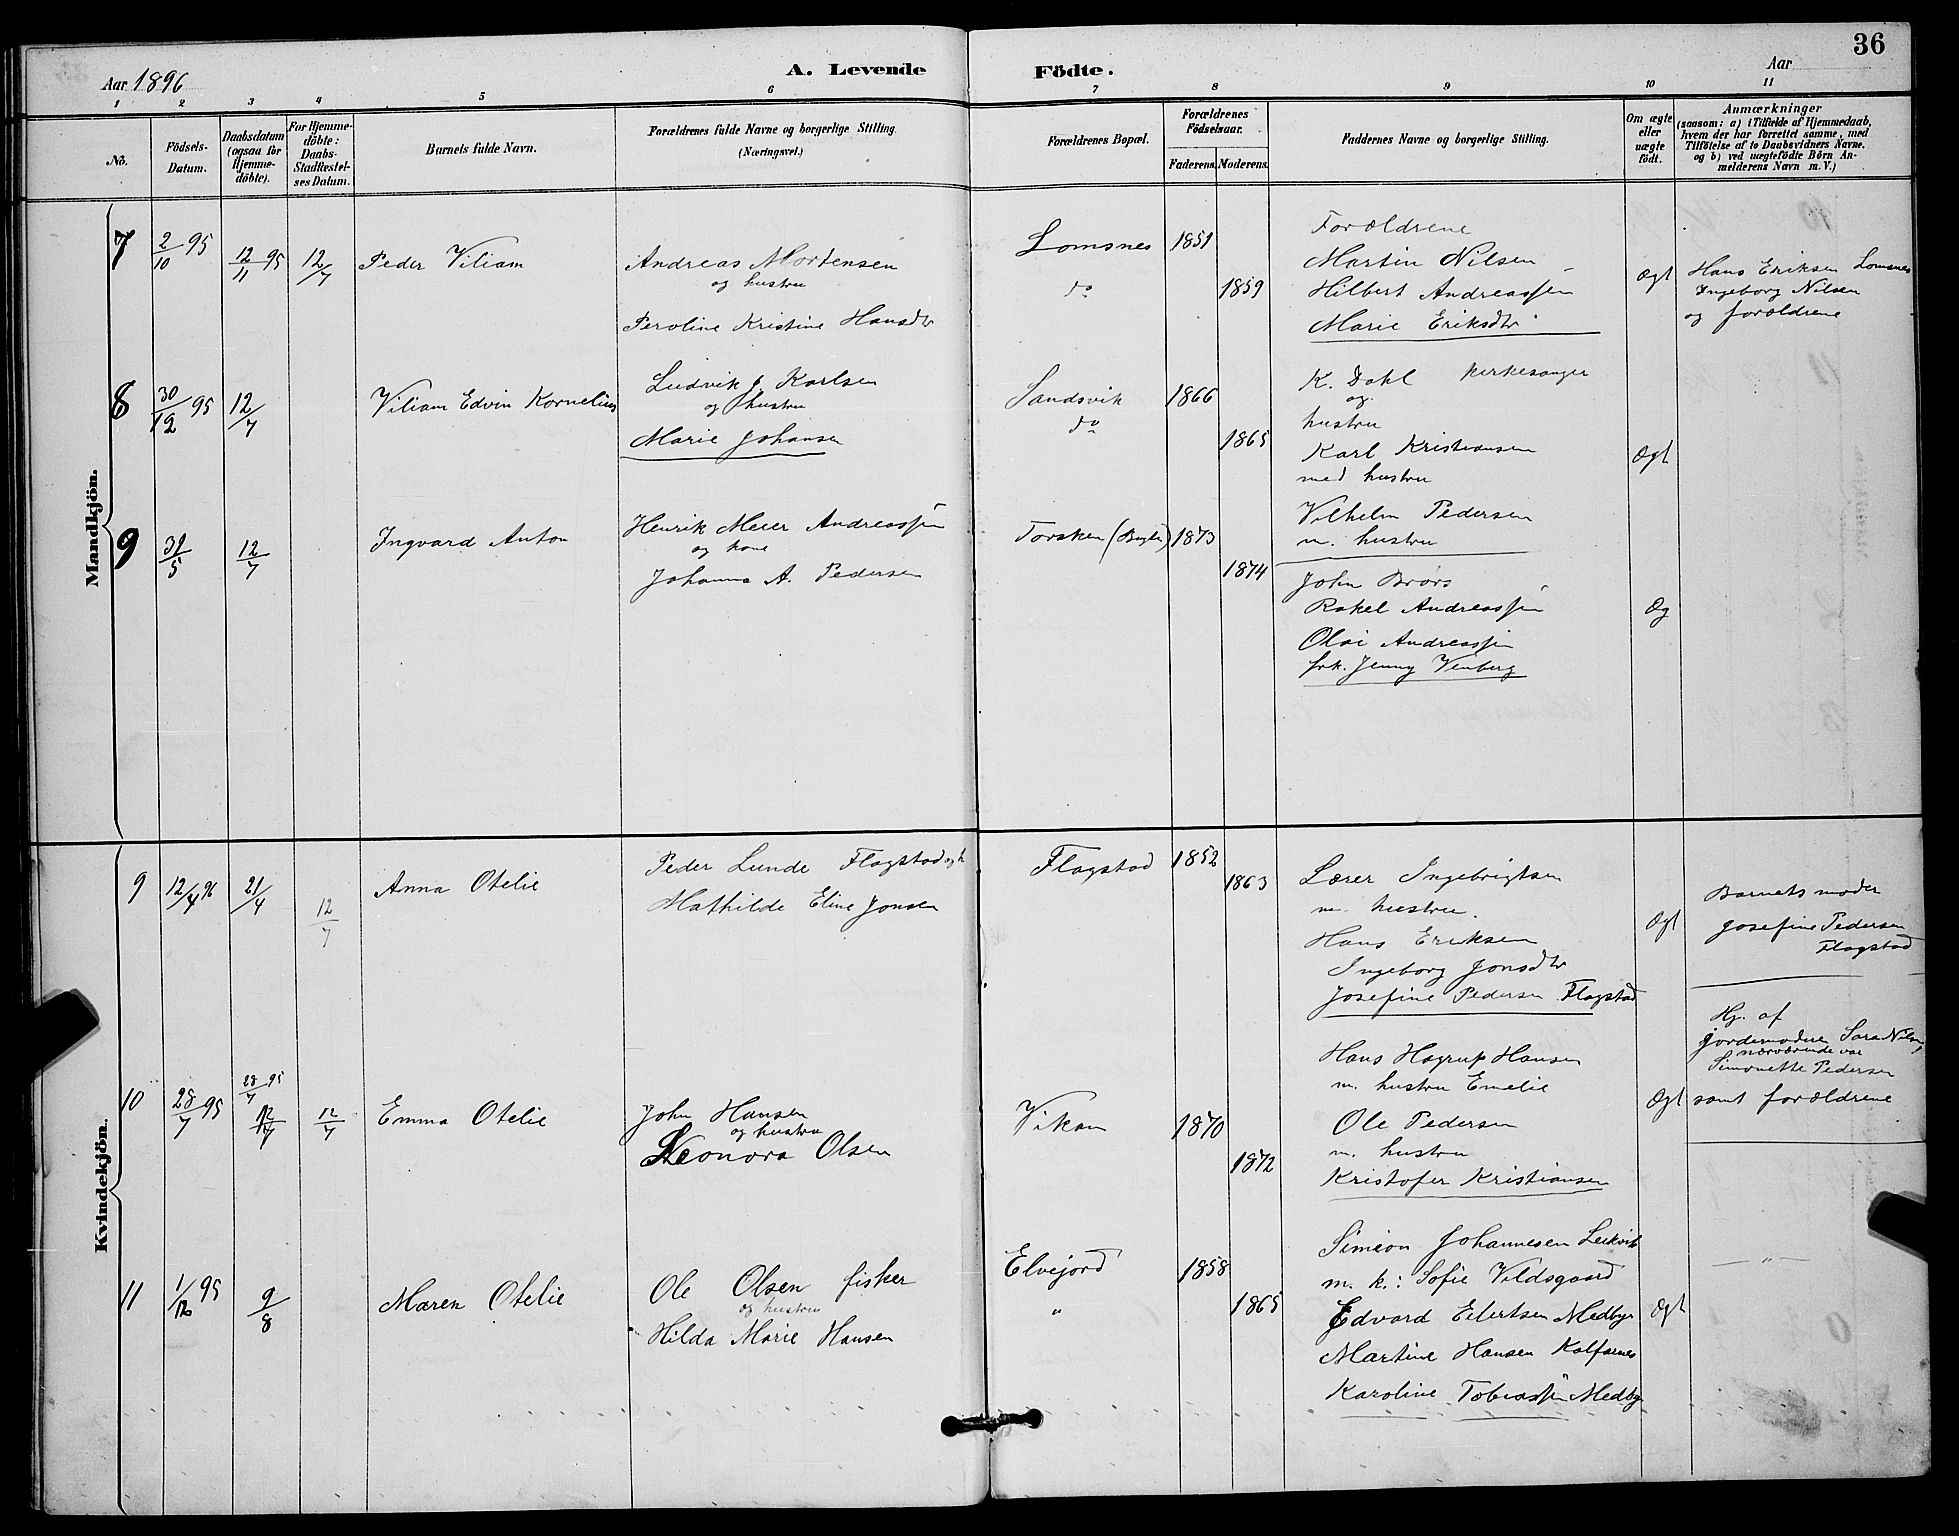 36
Aar 1896
A. Levende Födte.
Aar
1 2 3 4 5 6 7 8 9 10 11
No.
Födsels-Datum.
Daabsdatum (ogsaa for Hjemme-döbte).
For Hjemme-döbte: Daabs-Stadfæstel-ses Datum.
Barnets fulde Navn.
Forældrenes fulde Navne og borgerlige Stilling.
(Næringsvei.)
Forældrenes Bopæl.
Forældrenes Födselsaar.
Faderens. Moderens.
Faddernes Navne og borgerlige Stilling.
Om ægte eller uægte födt.
Anmærkninger
(saasom: a) i Tilfælde af Hjemmedaab,
hvem der har forrettet samme, med
Tilföielse af to Daabsvidners Navne,
og b) ved uægtefödte Börn An-
melderens Navn m. V.)
Mandkjön.
7 2/10 95 12/11 95 12/7 Peder Viliam
Andreas Mortensen
og hustru
Peroline Kristine Hansdtr
Lomsnes 1851
do 1859
Forældrene
Martin Nilsen
Hilbert Andreassen
Marie Eriksdtr
Ægt
Hans Eriksen Lomsnes
Ingeborg Nilsen
og forældrene
8 30/12 95 12/7 Viliam Edvin Kornelius
Ludvig J. Karlsen
og hustru
Marie Johansen
Sandsvik 1866
do 1865
K. Dahl kirkesanger
og
hustru
Karl Kristiansen
med hustru
Vilhelm Pedersen
m. hustru
Ægt
9 31/5 12/7 Ingvard Anton
Henrik Meier Andreassen
og kone
Johanna A. Pedersen
Torsken 1873
1874
John Brörs
Rakel Andreassen
Olai Andreassen
frk. Jenny Venberg
Æg
Kvindekjön.
9 12/4 96 21/4 12/7 Anna Otelie
Peder Lunde Flagstad og h
Mathilde Eline Jonsen
Flagstad 1852
1863
Lærer Ingebrigtsen
m. hustru.
Hans Eriksen
Ingeborg Jonsdtr
Josefine Pedersen Flagstad
Ægt
Barnets moder
Josefine Pedersen
Flagstad
10 28/7 95 28/7 95 12/7 12/7 Emma Otelie
John Hansen
og hustru
Leonora Olsen
Vikan 1870
1872
Hans Hagrup Hansen
m. hustru Emelie
Ole Pedersen
m. hustru
Kristofer Kristiansen
Ægt
Hj. af
jordemodere Sara Nilsen,
nærværende var
Simonette Pedersen
samt forældrene
11 1/12 95 9/8 Maren Otelie
Ole Olsen fisker
og hustru
Hilda Marie Hansen
Elvejord 1858
" 1865
Simeon Johannesen Leikvik
m. k.: Sofie Vildsgaard
Edvard Eilertsen Medbyr
Martine Hansen Kalfarnes
Karoline Tobiassen Medby
Ægt
— " —